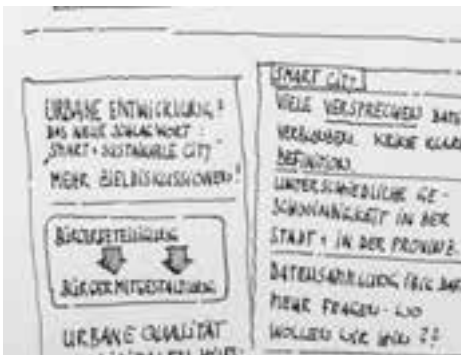 URBANE ENTWICKLUNG:
DAS NEUE SCHLAGWORT:
"SMART + SUSTAINABLE CITY"
MEHR ZIELDISKUSSIONEN!
BÜRGERBETEILIGUNG
BÜRGERMITGESTALTUNG
URBANE QUALITÄT
SMART CITY
VIELE VERSPRECHEN DAMIT
VERBUNDEN. KEINE KLARE
DEFINITION.
UNTERSCHIEDLICHE GE-
SCHWINDIGKEIT IN DER
STADT + IN DER PROVINZ.
DATENSAMMLUNG (BIG DAT
MEHR FRAGEN - WO
WOLLEN WIR HIN??